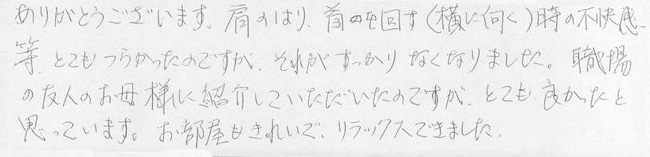 ありがとうございます。肩のはり、首を回す(横に向く)時の不快感
等、とてもつらかったのですが、それがすっかりなくなりました。職場
の友人のお母様に紹介していただいたのですが、とても良かったと
思っています。お部屋もきれいで、リラックスできました。